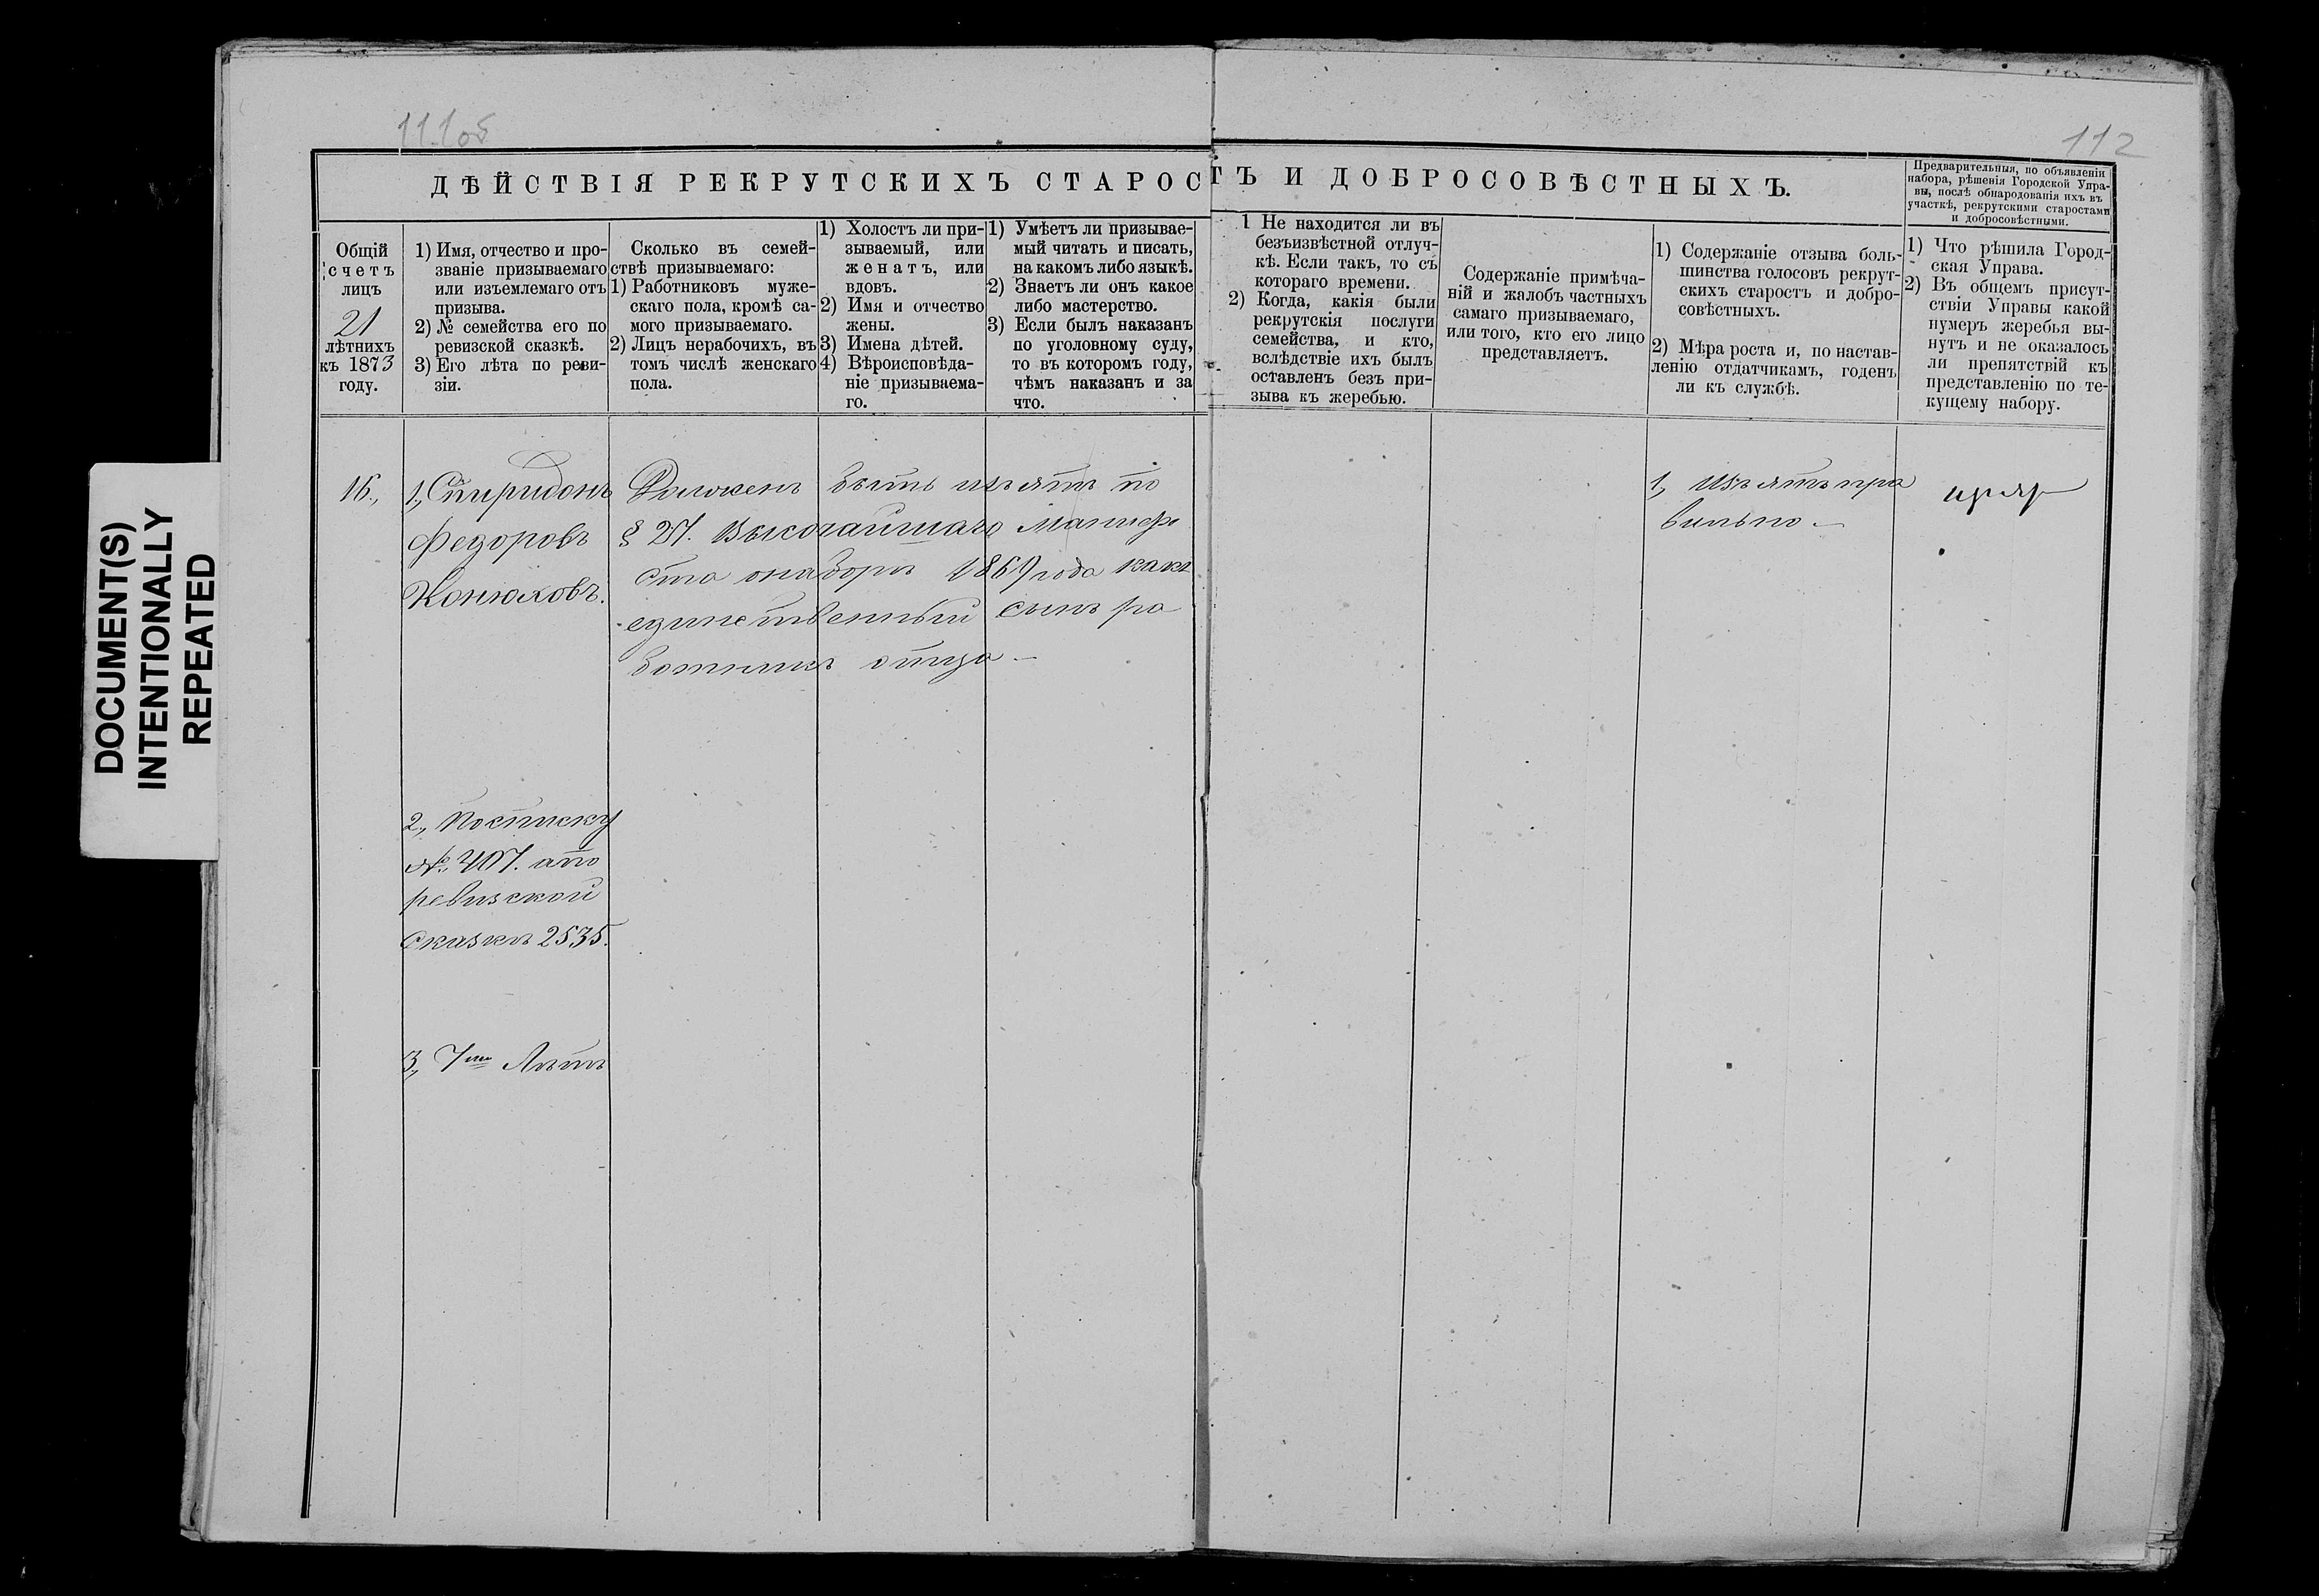 111об
112
ДѢЙСТВІЯ РЕКРУТСКИХЪ СТАРОСТЪ И ДОБРОСОВѢСТНЫХЪ.
Предварительныя, по объявленіи
набора, рѣшенія Городской Упра-
вы, послѣ обнародованія ихъ въ
участкѣ, рекрутскими старостами
и добросовѣстными.
Общій
счетъ
лицъ
21
лѣтнихъ
къ 1873
году.
1) Имя, отчество и про-
званіе призываемаго
или изъемлемаго отъ
призыва.
2) № семейства его по
ревизской сказкѣ.
3) Его лѣта по реви-
зіи.
Сколько въ семей-
ствѣ призываемаго:
1) Работниковъ муже-
скаго пола, кромѣ са-
мого призываемаго.
2) Лицъ нерабочихъ, въ
томъ числѣ женскаго
пола.
1) Холостъ ли при-
зываемый, или
женатъ, или
вдовъ.
2) Имя и отчество
жены.
3) Имена дѣтей.
4) Вѣроисповѣда-
ніе призываема-
го.
1) Умѣетъ ли призывае-
мый читать и писать,
на какомъ либо языкѣ.
2) Знаетъ ли онъ какое
либо мастерство.
3) Если былъ наказанъ
по уголовному суду,
то въ которомъ году,
чѣмъ наказанъ и за
что.
1 Не находится ли въ
безъизвѣстной отлуч-
кѣ. Если такъ, то съ
котораго времени.
2) Когда, какія были
рекрутскія послуги
семейства, и кто,
вслѣдствіе ихъ былъ
оставленъ безъ при-
зыва къ жеребью.
Содержаніе примѣча-
ній и жалобъ частныхъ
самаго призываемаго,
или того, кто его лицо
представляетъ.
1) Содержаніе отзыва боль-
шинства голосовъ рекрут-
скихъ старостъ и добро-
совѣстныхъ.
2) Мѣра роста и, по настав-
ленію отдатчикамъ, годенъ
ли къ службѣ.
1) Что рѣшила Город-
ская Управа.
2) Въ общемъ присут-
ствіи Управы какой
нумеръ жеребья вы-
нутъ и не оказалось
ли препятствій къ
представленію по те-
кущему набору.
16.,
1., Спиридонъ
Федоровъ
Конюховъ.
Долженъ быть изъятъ по
§ 27. Высочайшаго Манифе
ста о наборѣ 1869 года какъ
единственный сынъ ра
ботникъ отца —
1., Изъятъ пра
вильно. —
2., По списку
№ 407. а по
ревизской
Сказкѣ 2535.
3., 7ми Лѣтъ
DOCUMENT(S)
INTENTIONALLY
REPEATED